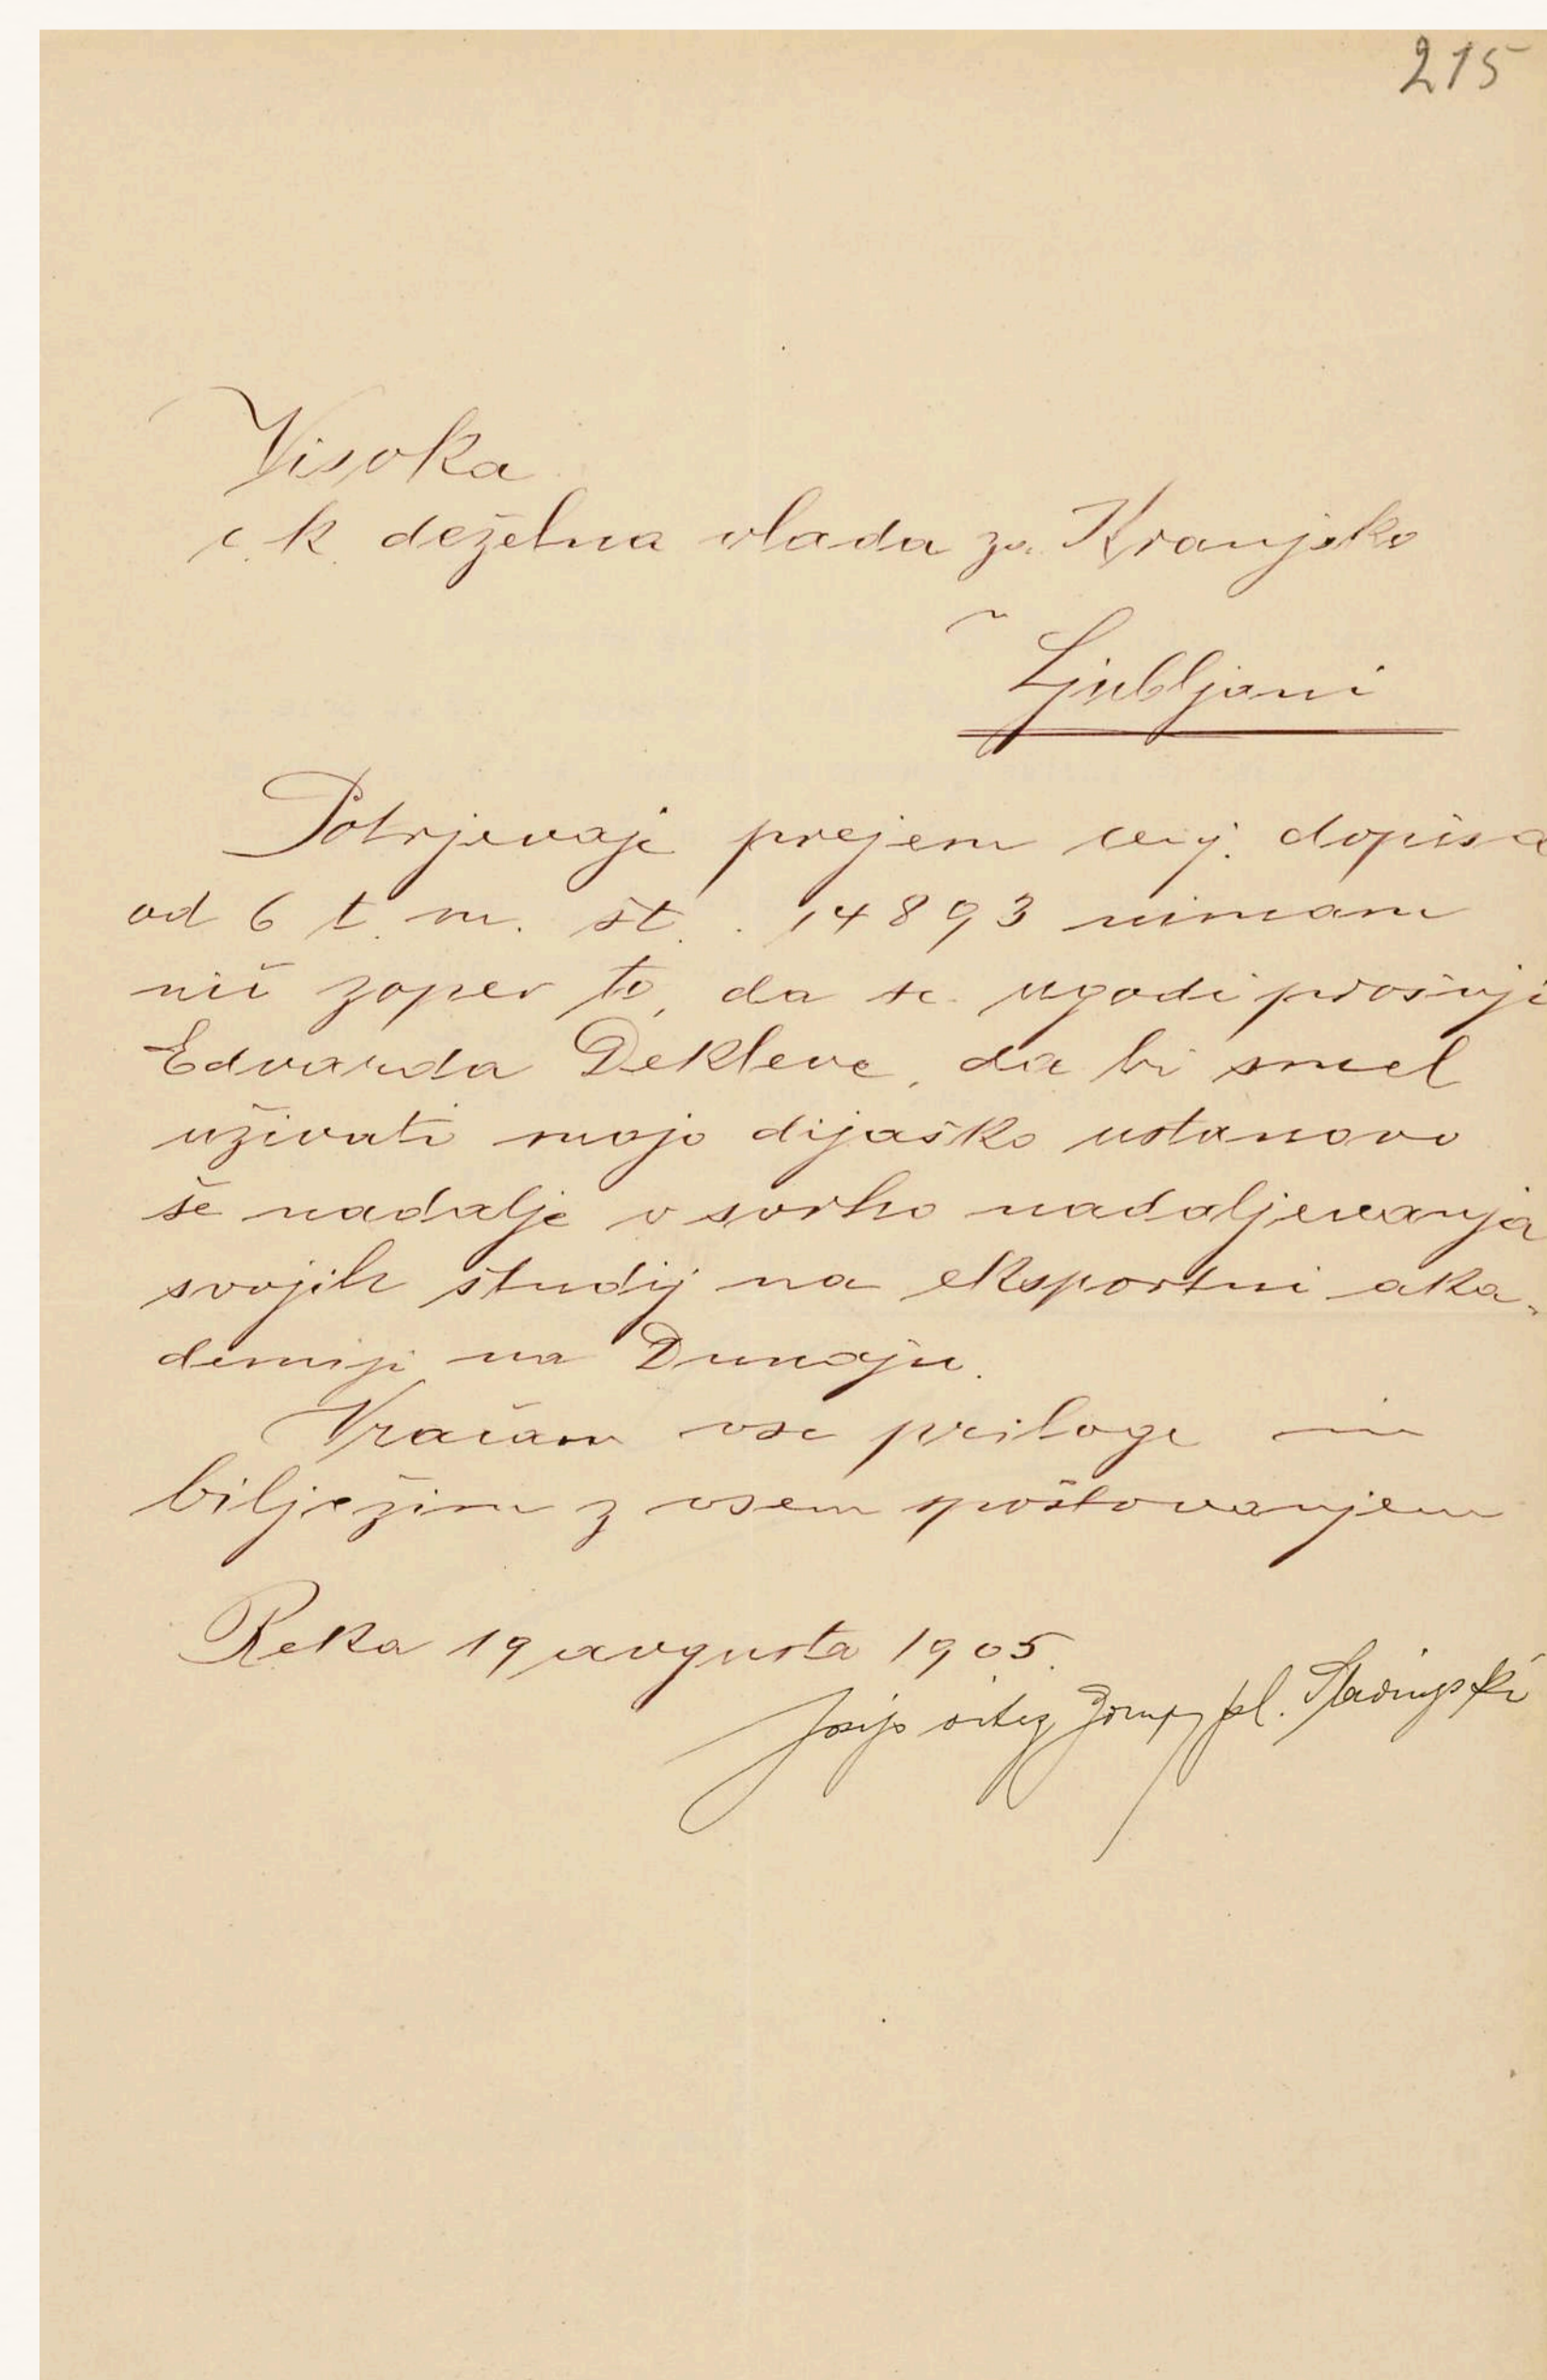 215
Visoka
c. k. deželna vlada za Kranjsko
v
Ljubljani
Potrjevaje prejem cenj. dopisa
od 6 t. m. št. 14893 nimam
nič zoper to, da se ugodi prošnji
Edvarda Dekleve, da bi smel
uživati mojo dijaško ustanovo
še nadalje v svrho nadaljevanja
svojih študij na eksportni aka-
demiji na Dunaju.
Vračam vse priloge in
bilježim z vsem spoštovanjem
Reka 19 avgusta 1905.
Josip vitez pl.